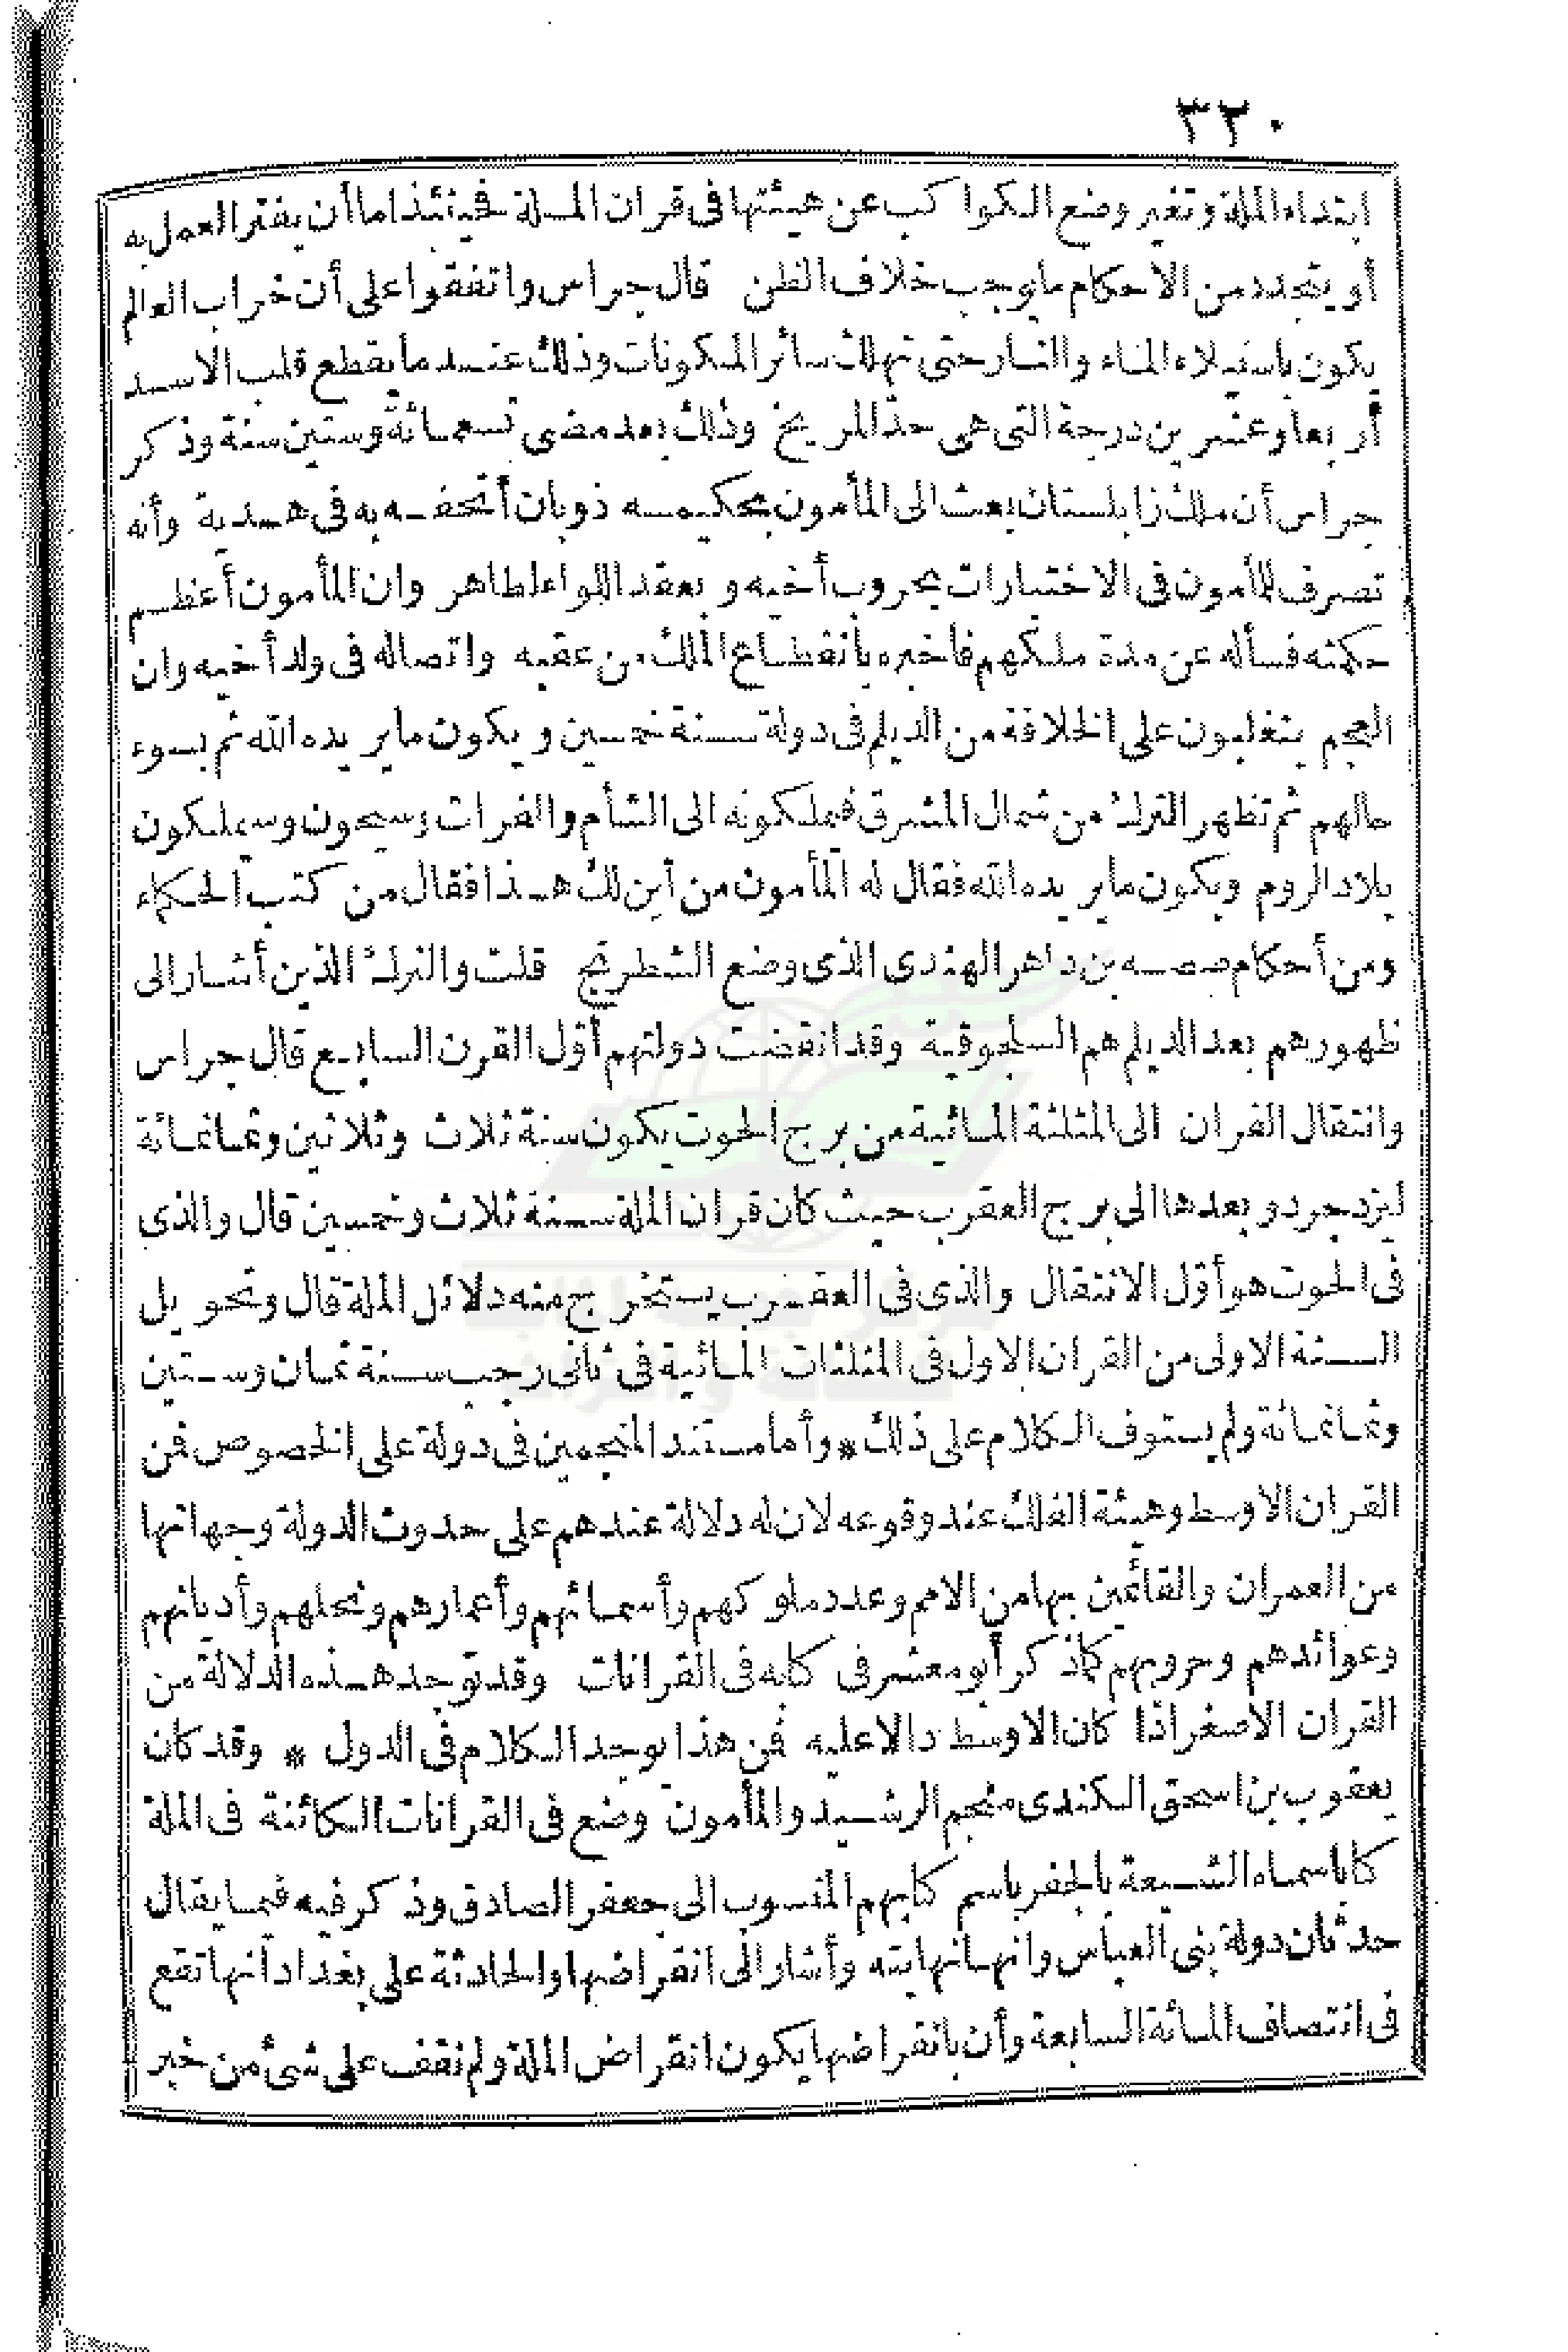 ٣٢٠
ابتداء الملة وتغير وضع الكواكب عن هيئتها فى قران الملة فحينئذ اما أن يفتر العمل به
أو يتجدد من الاحكام ما يوجب خلاف الظن قال جراس واتفقوا على أن خراب العالم
يكون باستيلاء الماء والنار حتى تهلك سائر المكونات وذلك عند ما يقطع قلب الاسد
أربعا وعشرين درجة التى هى حد المريخ وذلك بعد مضى تسعمائة وستين سنة وذكر
جراس أن ملك زابلستان بعث الى المأمون بحكيمه ذوبان أتحفه به فى هدية وأنه
تصرف للمأمون فى الاختيارات بحروب أخيه و بعقد اللواء لطاهر وان المأمون أعظم
حكمته فسأله عن مدة ملكهم فأخبره بانقطاع الملك من عقبه واتصاله فى ولد أخيه وان
العجم يتغلبون على الخلافة من الديلم فى دولة سنة خمسين و يكون ما ير يده الله ثم يسوء
حالهم ثم تظهر الترك من شمال المشرق فيملكونه الى الشأم والفرات وسيحون وسيملكون
بلاد الروم ويكون ما ير يده الله فقال له المأمون من أين لك هذا فقال من كتب الحكماء
ومن أحكام صصه بن داهر الهندى الذى وضع الشطرنج قلت والترك الذين أشار الى
ظهورهم بعد الديلم هم السلجوقية وقد انقضت دولتهم أول القرن السابع قال جراس
وانتقال القران الى المثلثة المائية من برج الحوت يكون سنة ثلاث وثلاثين وثمانمائة
ليزدجرد و بعدها الى برج العقرب حيث كان قران الملة سنة ثلاث وخمسين قال والذى
فى الحوت هو أول الانتقال والذى فى العقرب يستخرج منه دلائل الملة قال وتحويل
السنة الاولى من القران الاول فى المثلثات المائية فى ثانى رجب سنة ثمان وستين
وثمانمائة ولم يستوف الكلام على ذلك * وأما مستند المنجمين فى دولة على الخصوص فمن
القران الاوسط وهيئة الفلك عند وقوعه لان له دلالة عندهم على حدوث الدولة وجهاتها
من العمران والقائمين بها من الامم وعدد ملوكهم وأسمائهم وأعمارهم ونحلهم وأديانهم
وعوائدهم وحروبهم كما ذكر أبو معشر فى كتابه فى القرانات وقد توجد هذه الدلالة من
القران الاصغر اذا كان الاوسط دالا عليه فمن هذا يوجد الكلام فى الدول * وقد كان
يعقوب بن اسحق الكندى منجم الرشيد والمأمون وضع فى القرانات الكائنة فى الملة
كتابا سماه الشيعة بالجفر باسم كتابهم المنسوب الى جعفر الصادق وذكر فيه فيما يقال
حدثان دولة بنى العباس وانها نهايته وأشار الى انقراضها والحادثة على بغداد أنها تقع
فى انتصاف المائة السابعة وأن بانقراضها يكون انقراض الملة ولم نقف على شئ من خبر